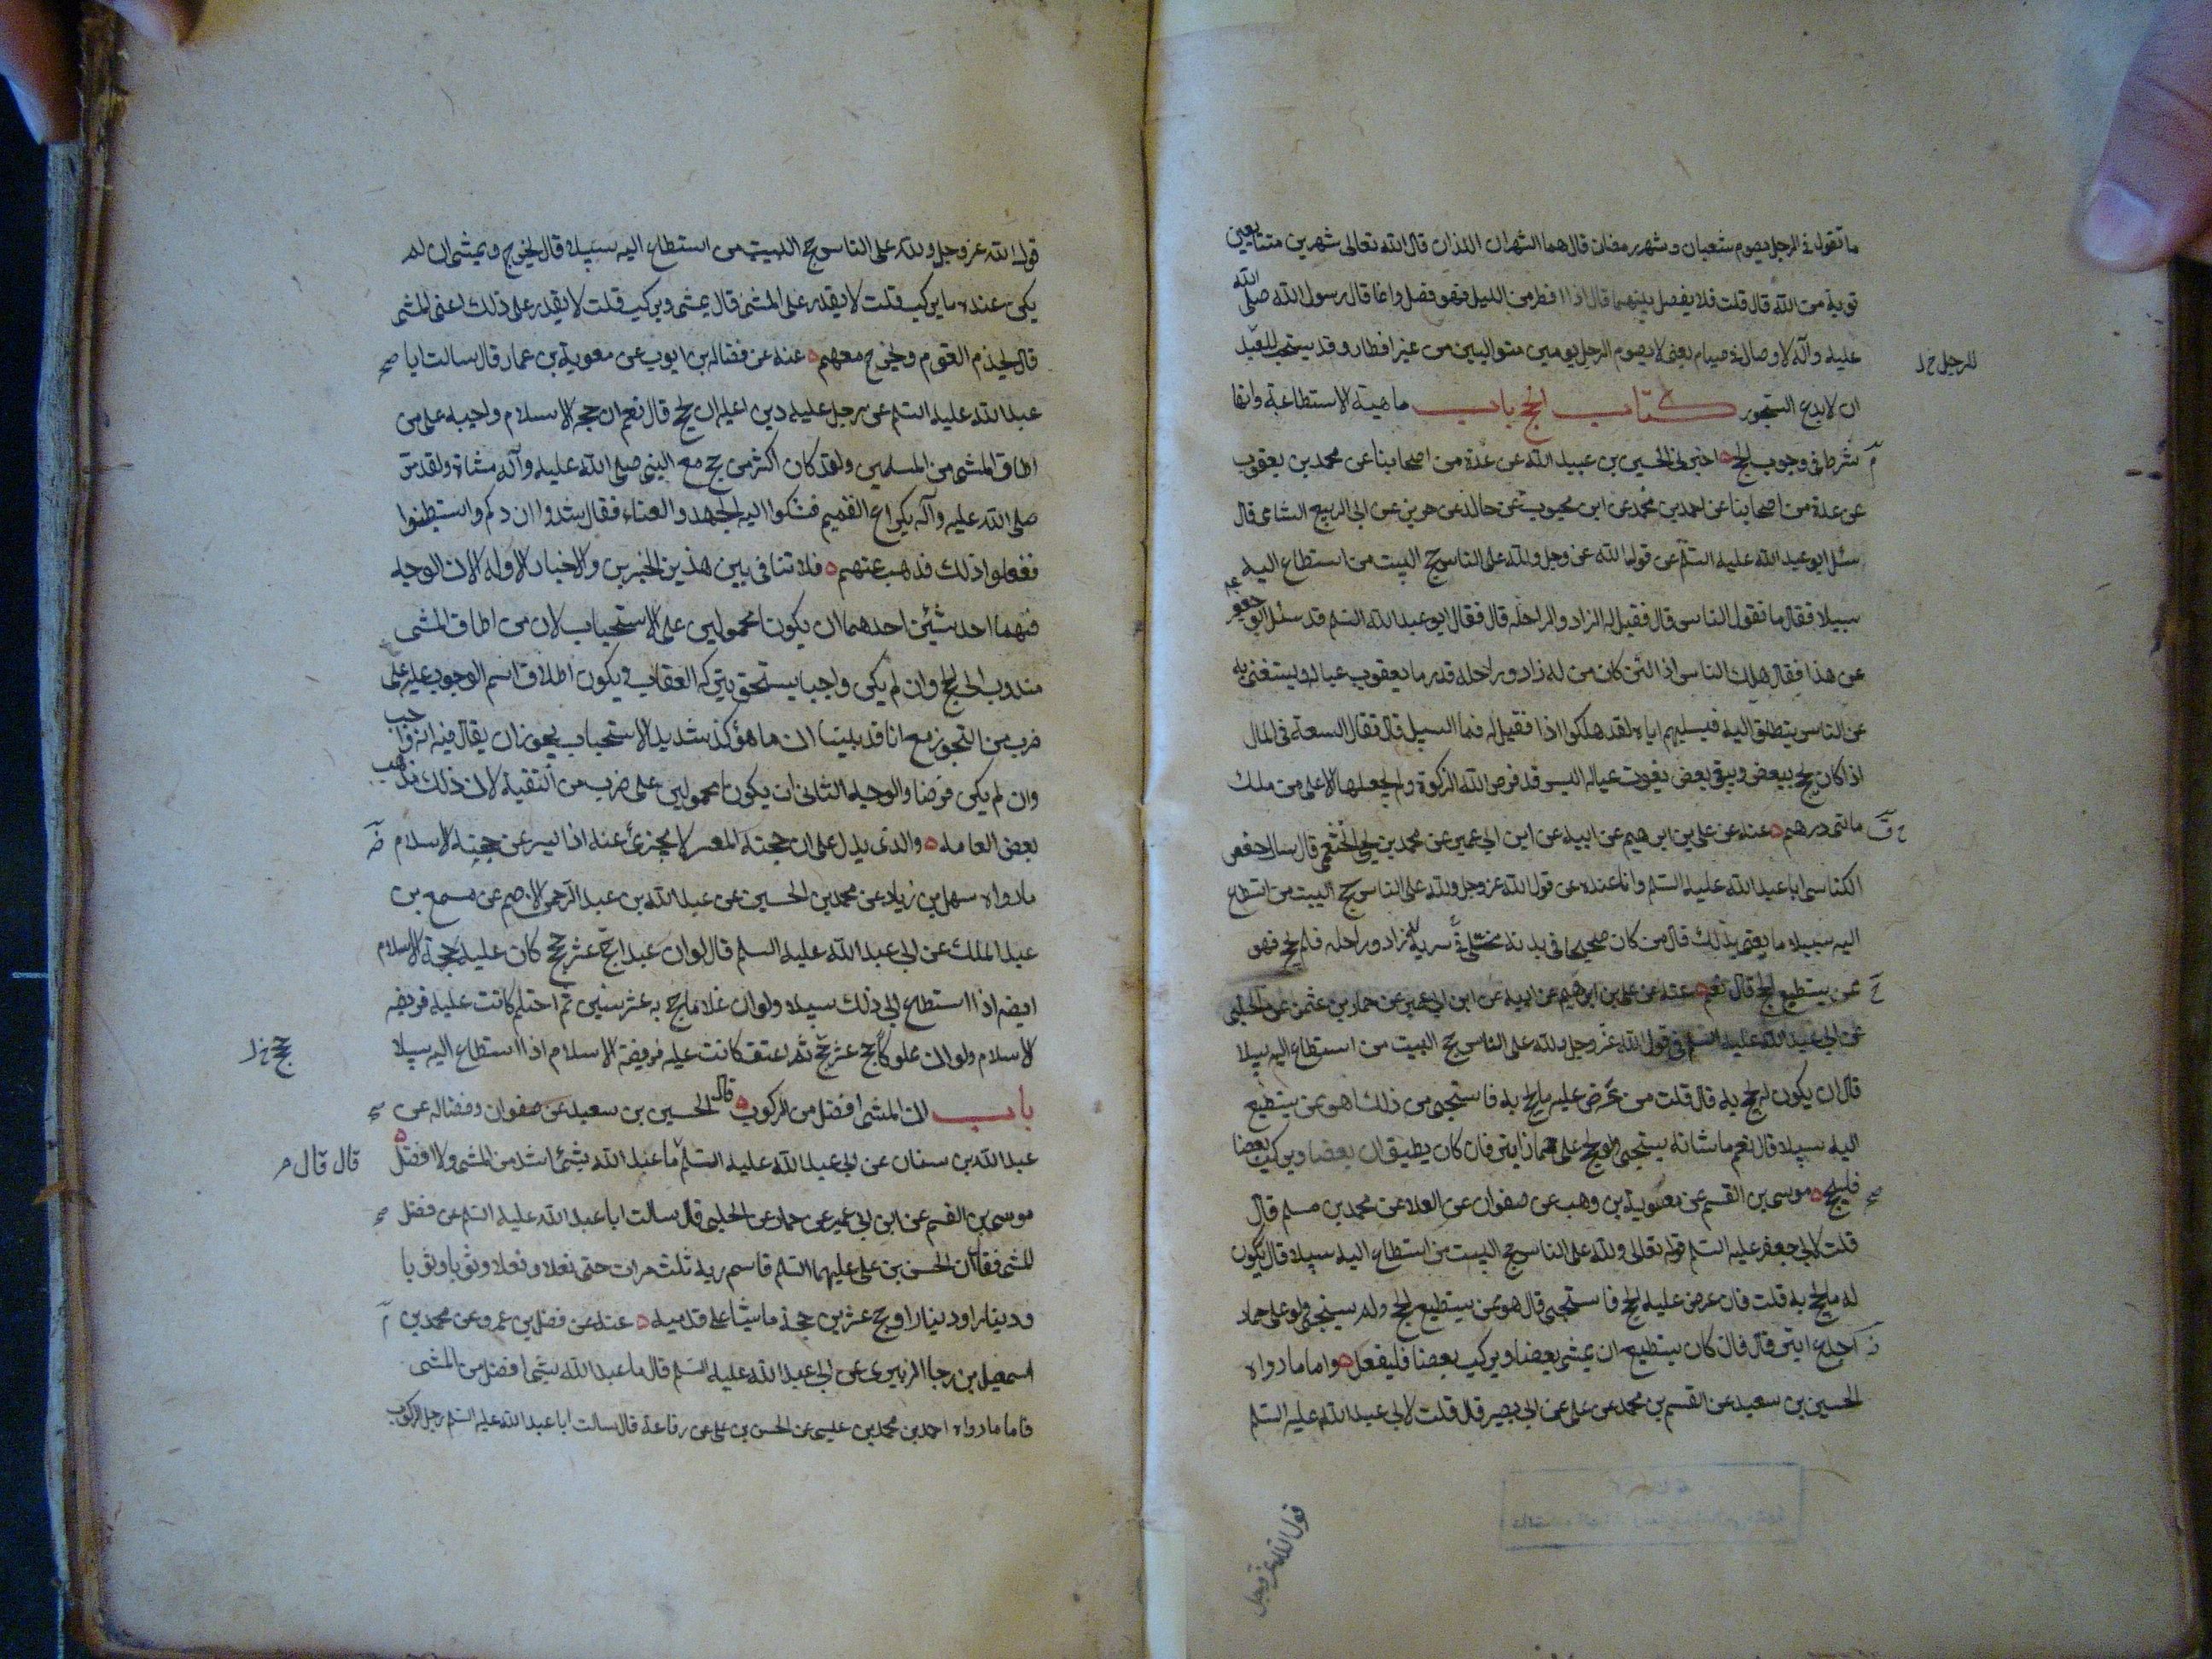 ما تقول في الرجل يصوم شعبان وشهر رمضان قال هما الشهران اللذان قال الله تعالى شهرين متتابعين
توبة من الله قال قلت فلا يفصل بينهما قال اذا افطر من الليل فهو فصل وانما قال رسول الله صلى الله
عليه وآله لا وصال في صيام يعنى لا يصوم الرجل يومين متواليين من غير افطار وقد يستحب للعبد
للرجل خ ل
ان لا يدع السحور كتاب الحج باب ماهية الاستطاعة وانها
شرط في وجوب الحج اخبرني الحسين بن عبيد الله عن عدة من اصحابنا عن محمد بن يعقوب
عن عدة من اصحابنا عن احمد بن محمد عن ابن محبوب عن خالد بن جرير عن ابى الربيع الشامي قال
سئل ابو عبد الله عليه السلم عن قول الله عز وجل ولله على الناس حج البيت من استطاع اليه
سبيلا فقال ما تقول الناس قال فقيل له الزاد والراحلة قال فقال ابو عبد الله السلم قد سئل ابو جعفر
عن هذا فقال هلك الناس اذا لئن كان من له زاد وراحلة قدر ما يقوت عياله ويستغنى به
عن الناس ينطلق اليه فيسلبهم اياه لقد هلكوا اذا فقيل له فما السبيل قال فقال السعة في المال
اذا كان يحج ببعض ويبقى بعض يقوت عياله اليس قد فرض الله الزكوة ولم يجعلها الا على من ملك
مائتى درهم عنه عن علي بن ابرهيم عن ابيه عن ابن ابي عمير عن محمد بن يحيى الخثعمى قال سال حفص
الكناسى ابا عبد الله عليه السلم وانا عنده عن قول الله عز وجل ولله على الناس حج البيت من استطاع
اليه سبيلا ما يعنى بذلك قال من كان صحيحا في بدنه مخلى سربه له زاد وراحلة فلم يحج فهو
ممن يستطيع الحج قال نعم عنه عن علي بن ابرهيم عن ابيه عن ابن ابي عمير عن حماد بن عثمن عن الحلبي
عن ابي عبد الله عليه السلم في قول الله عز وجل ولله على الناس حج البيت من استطاع اليه سبيلا
قال ان يكون له ما يحج به قال قلت من عرض عليه ما يحج به فاستحيى من ذلك اهو ممن يستطيع
اليه سبيلا قال نعم ما شانه يستحيى ولو يحج على حمار ابتر فان كان يطيق ان يمشى بعضا ويركب بعضا
فليحج موسى بن القسم عن معوية بن وهب عن صفوان عن العلا عن محمد بن مسلم قال
قلت لابي جعفر عليه السلم قوله تعالى ولله على الناس حج البيت من استطاع اليه سبيلا قال يكون
له ما يحج به قلت فان عرض عليه الحج فاستحيى قال هو ممن يستطيع الحج ولم يستحيى ولو على حمار
اجدع ابتر قال فان كان يستطيع ان يمشى بعضا ويركب بعضا فليفعل واما ما رواه
الحسين بن سعيد عن القسم بن محمد عن على عن ابي بصير قال قلت لابي عبد الله عليه السلم
قول الله عز وجل
قول الله عز وجل ولله على الناس حج البيت من استطاع اليه سبيلا قال يخرج ويمشى ان لم
يكن عنده ما يركب قلت لا يقدر على المشى قال يمشى ويركب قلت لا يقدر على ذلك اعنى المشى
قال يخدم القوم ويخرج معهم عنه عن فضالة بن ايوب عن معوية بن عمار قال سالت ابا
عبد الله عليه السلم عن رجل عليه دين اعليه ان يحج قال نعم ان حجة الاسلام واجبة على من
اطاق المشى من المسلمين ولقد كان اكثر من حج مع النبي صلى الله عليه وآله مشاة ولقد مر
صلى الله عليه وآله بكراع الغميم فشكوا اليه الجهد والعناء فقال شدوا ازركم واستبطنوا
ففعلوا ذلك فذهب عنهم فلا تنافى بين هذين الخبرين والاخبار الاولة لان الوجه
فيهما احد شيئين احدهما ان يكونا محمولين على الاستحباب لان من اطاق المشى
مندوب الى الحج وان لم يكن واجبا يستحق بتركه العقاب ويكون اطلاق اسم الوجوب عليه على
ضرب من التجوز مع انا قد بينا ان ما هو مؤكد شديد الاستحباب يجوز ان يقال فيه انه واجب
وان لم يكن فرضا والوجه الثانى ان يكونا محمولين على ضرب من التقية لان ذلك مذهب
بعض العامة والذى يدل على ان حجة المعسر لا يجزئ عنه اذا ايسر عن حجة الاسلام
ما رواه سهل بن زياد عن محمد بن الحسين عن عبد الله بن عبد الرحمن الاصم عن مسمع بن
عبد الملك عن ابي عبد الله عليه السلم قال لو ان عبدا حج عشر حجج كان عليه حجة الاسلام
ايضا اذا استطاع الى ذلك سبيلا ولو ان غلاما حج به عشر سنين ثم احتلم كانت عليه فريضة
الاسلام ولو ان مملوكا حج عشر حجج ثم اعتق كانت عليه فريضة الاسلام اذا استطاع اليه سبيلا
حجج خ ل
باب ان المشى افضل من الركوب قال الحسين بن سعيد عن صفوان وفضالة عن
عبد الله بن سنان عن ابي عبد الله عليه السلم ما عبد الله بشئ اشد من المشى ولا افضل
قال قال
موسى بن القسم عن ابن ابي عمير عن حماد عن الحلبى قال سالت ابا عبد الله عليه السلم عن فضل
المشى فقال ان الحسن بن على عليهما السلم قاسم ربه ثلث مرات حتى نعلا ونعلا وثوبا وثوبا
ودينارا ودينارا وحج عشرين حجة ماشيا على قدميه عنه عن فضل بن عمرو عن محمد بن
اسمعيل بن رجا الزبيرى عن ابي عبد الله عليه السلم قال ما عبد الله بشئ افضل من المشى
فاما ما رواه احمد بن محمد بن عيسى عن الحسن بن على عن رفاعة قال سالت ابا عبد الله عليه السلم رجل الركوب